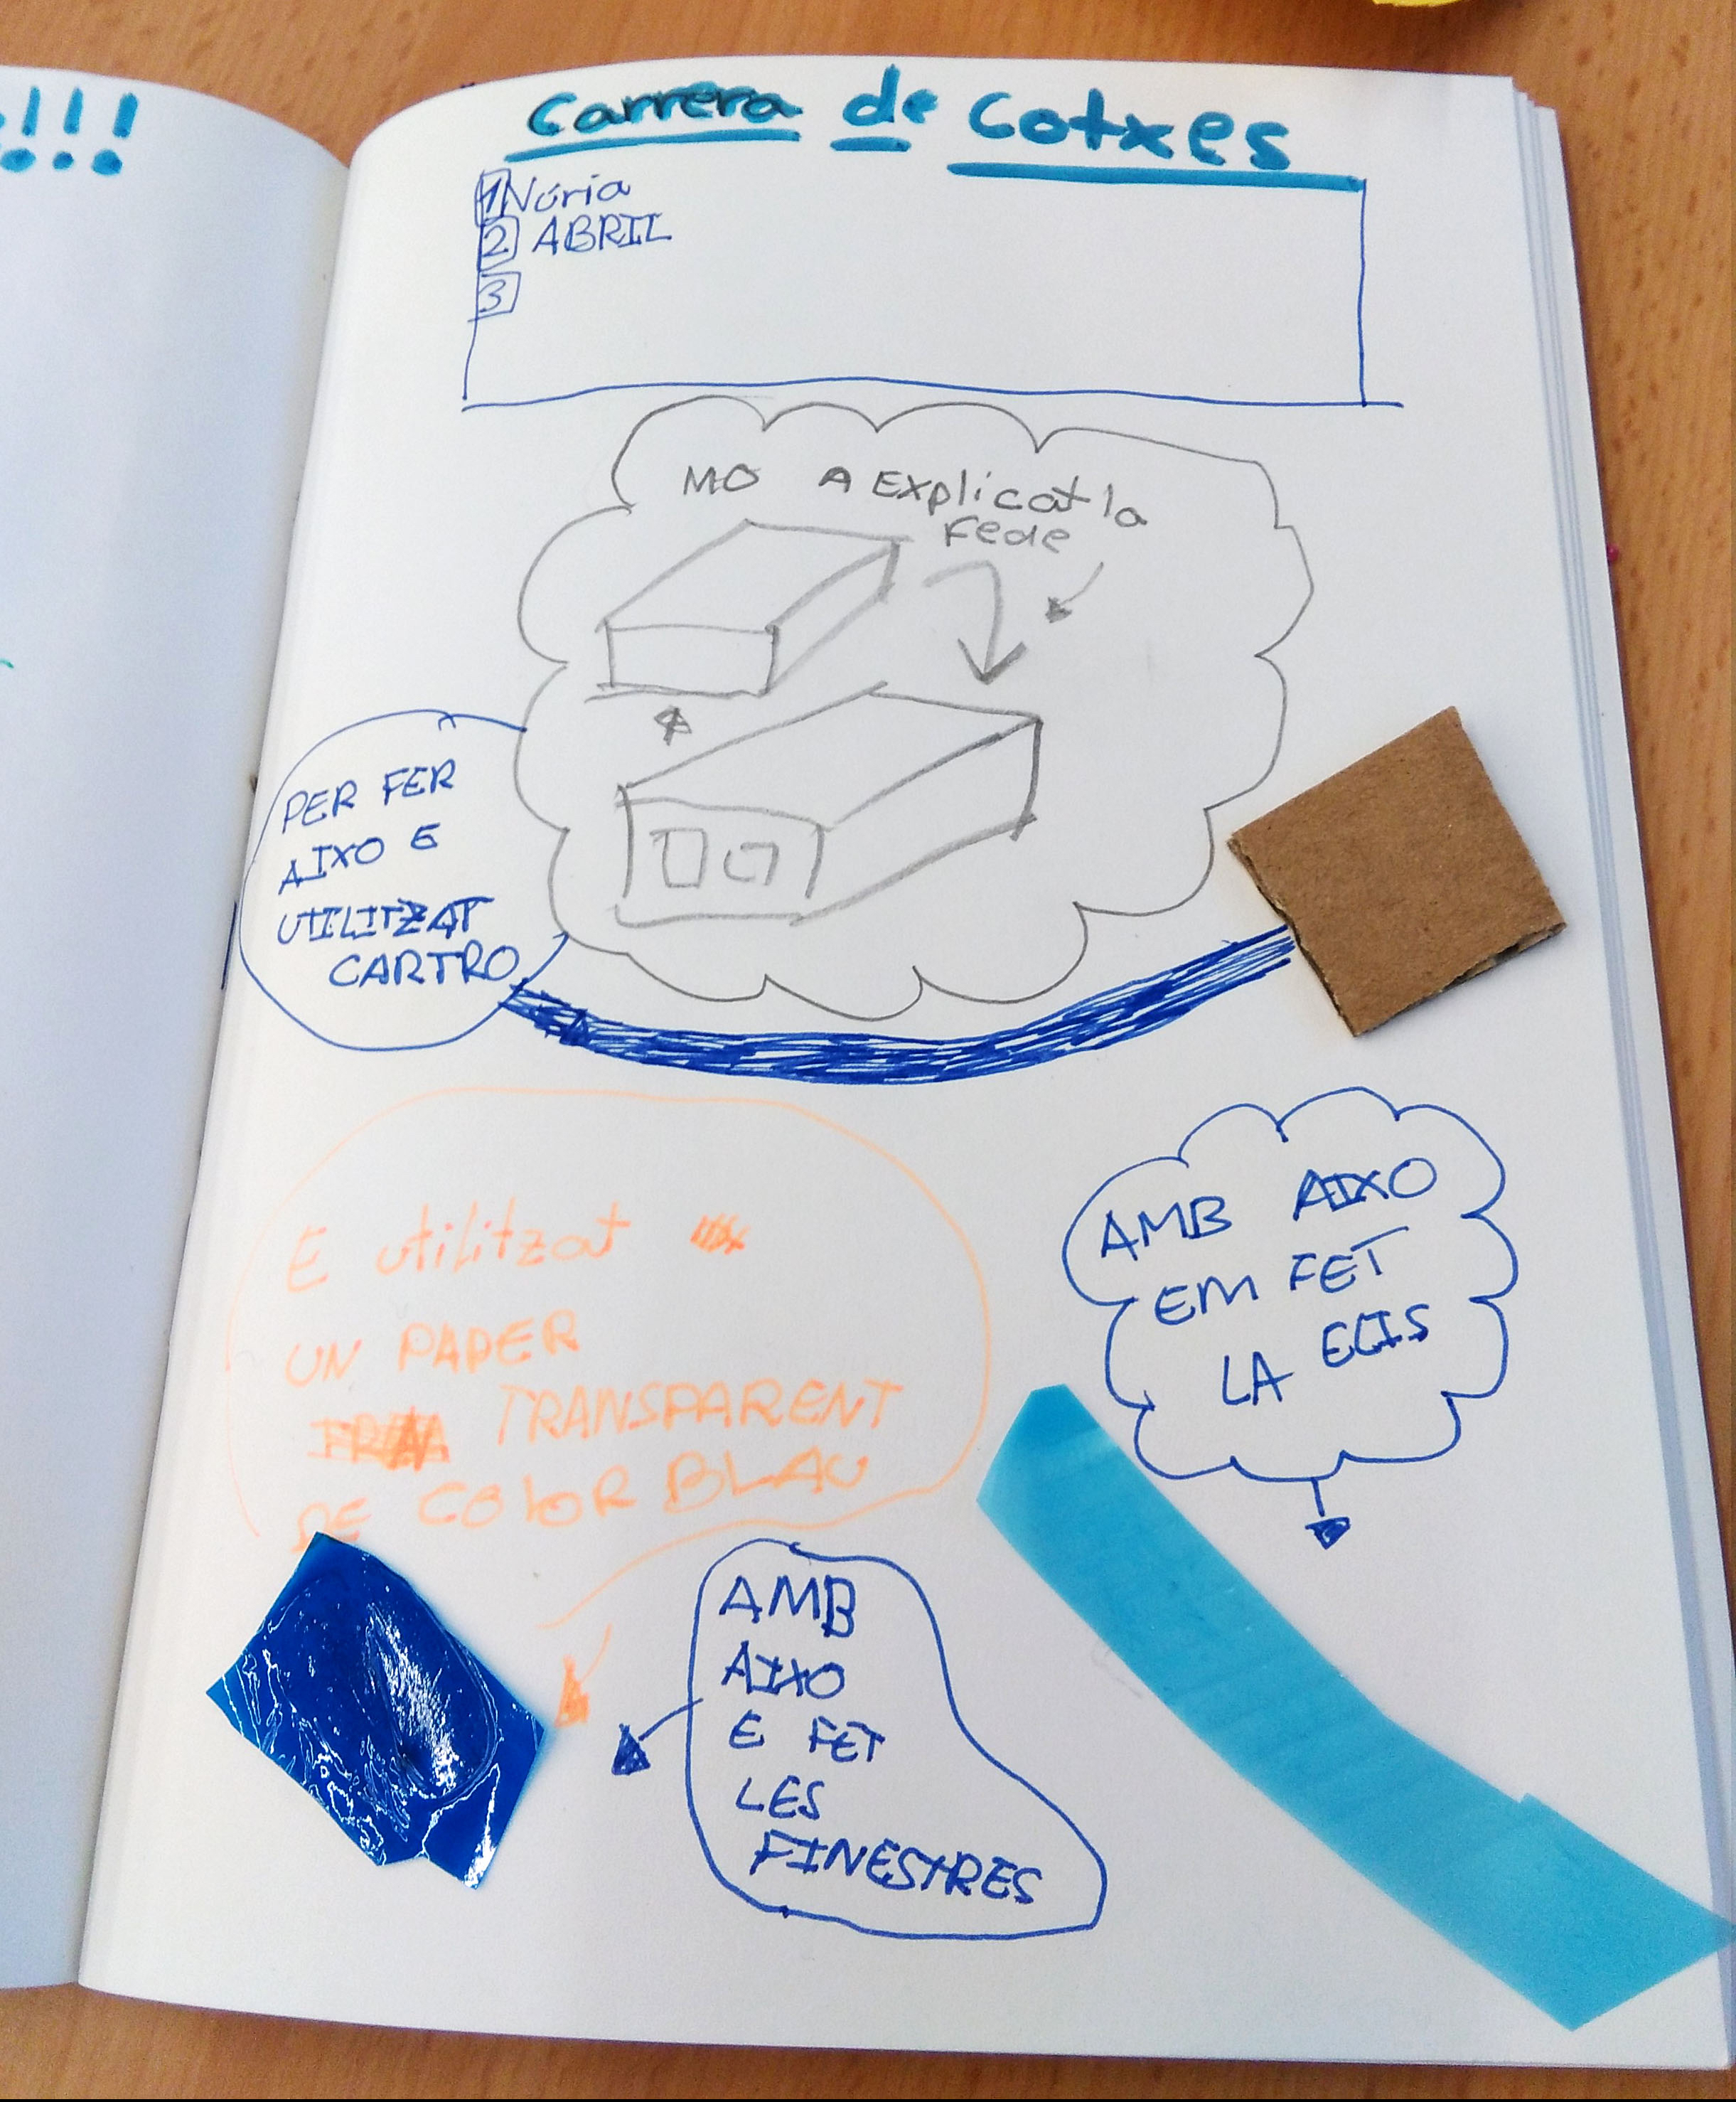 !!!
Carrera de Cotxes
1 Núria
2 ABRIL
3
MO A Explicat la
Fede
PER FER
AIXO E
UTILITZAT
CARTRO
E utilitzat
UN PAPER
TRANSPARENT
DE COlOR BLAU
AMB AIXO
EM FET
LA ECIS
AMB
AIXO
E FET
LES
FINESTRES